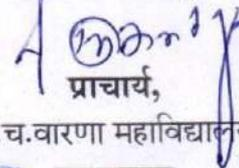 प्राचार्य,
च.वारणा महाविद्यालय